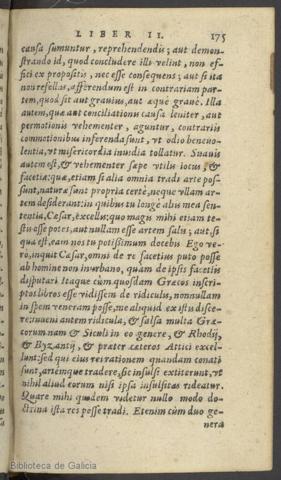 LIBER II. 175
causa sumuntur, reprehendendis; aut demon-
strando id, quod concludere illi velint, non ef-
fici ex propositis, nec esse consequens; aut si ita
non refellas, afferendum est in contrariam par-
tem, quod sit aut grauius, aut æque graue. Illa
autem, quæ aut conciliationis causa leniter, aut
permotionis vehementer, aguntur, contrariis
commotionibus inferenda sunt, vt odio beneuo-
lentia, vt misericordia inuidia tollatur. Suauis
autem est, & vehementer sæpe vtilis iocus, &
facetiæ: quæ, etiam si alia omnia tradi arte pos-
sunt, naturæ sunt propria certè, neque vllam ar-
tem desiderant: in quibus tu longè aliis mea sen-
tentia, Cæsar, excellis: quo magis mihi etiam te-
stis esse potes, aut nullam esse artem salis; aut, si
qua est, eam nos tu potissimum docebis. Ego ve-
ro, inquit Cæsar, omni de re facetius puto posse
ab homine non inurbano, quàm de ipsis facetiis
disputari. Itaque cùm quosdam Græcos inscri-
ptos libros esse vidissem de ridiculis, nonnullam
in spem veneram posse, me aliquid ex istis disce-
re: inueni autem ridicula, & salsa multa Græ-
corum: nam & Siculi in eo genere, & Rhodij,
& Byzantij, & præter cæteros Attici excel-
lunt: sed qui eius rei rationem quandam conati
sunt, artémque tradere, sic insulsi extiterunt, vt
nihil aliud eorum nisi ipsa insulsitas rideatur.
Quare mihi quidem videtur nullo modo do-
ctrina ista res posse tradi. Etenim cùm duo ge-
nera
Biblioteca de Galicia